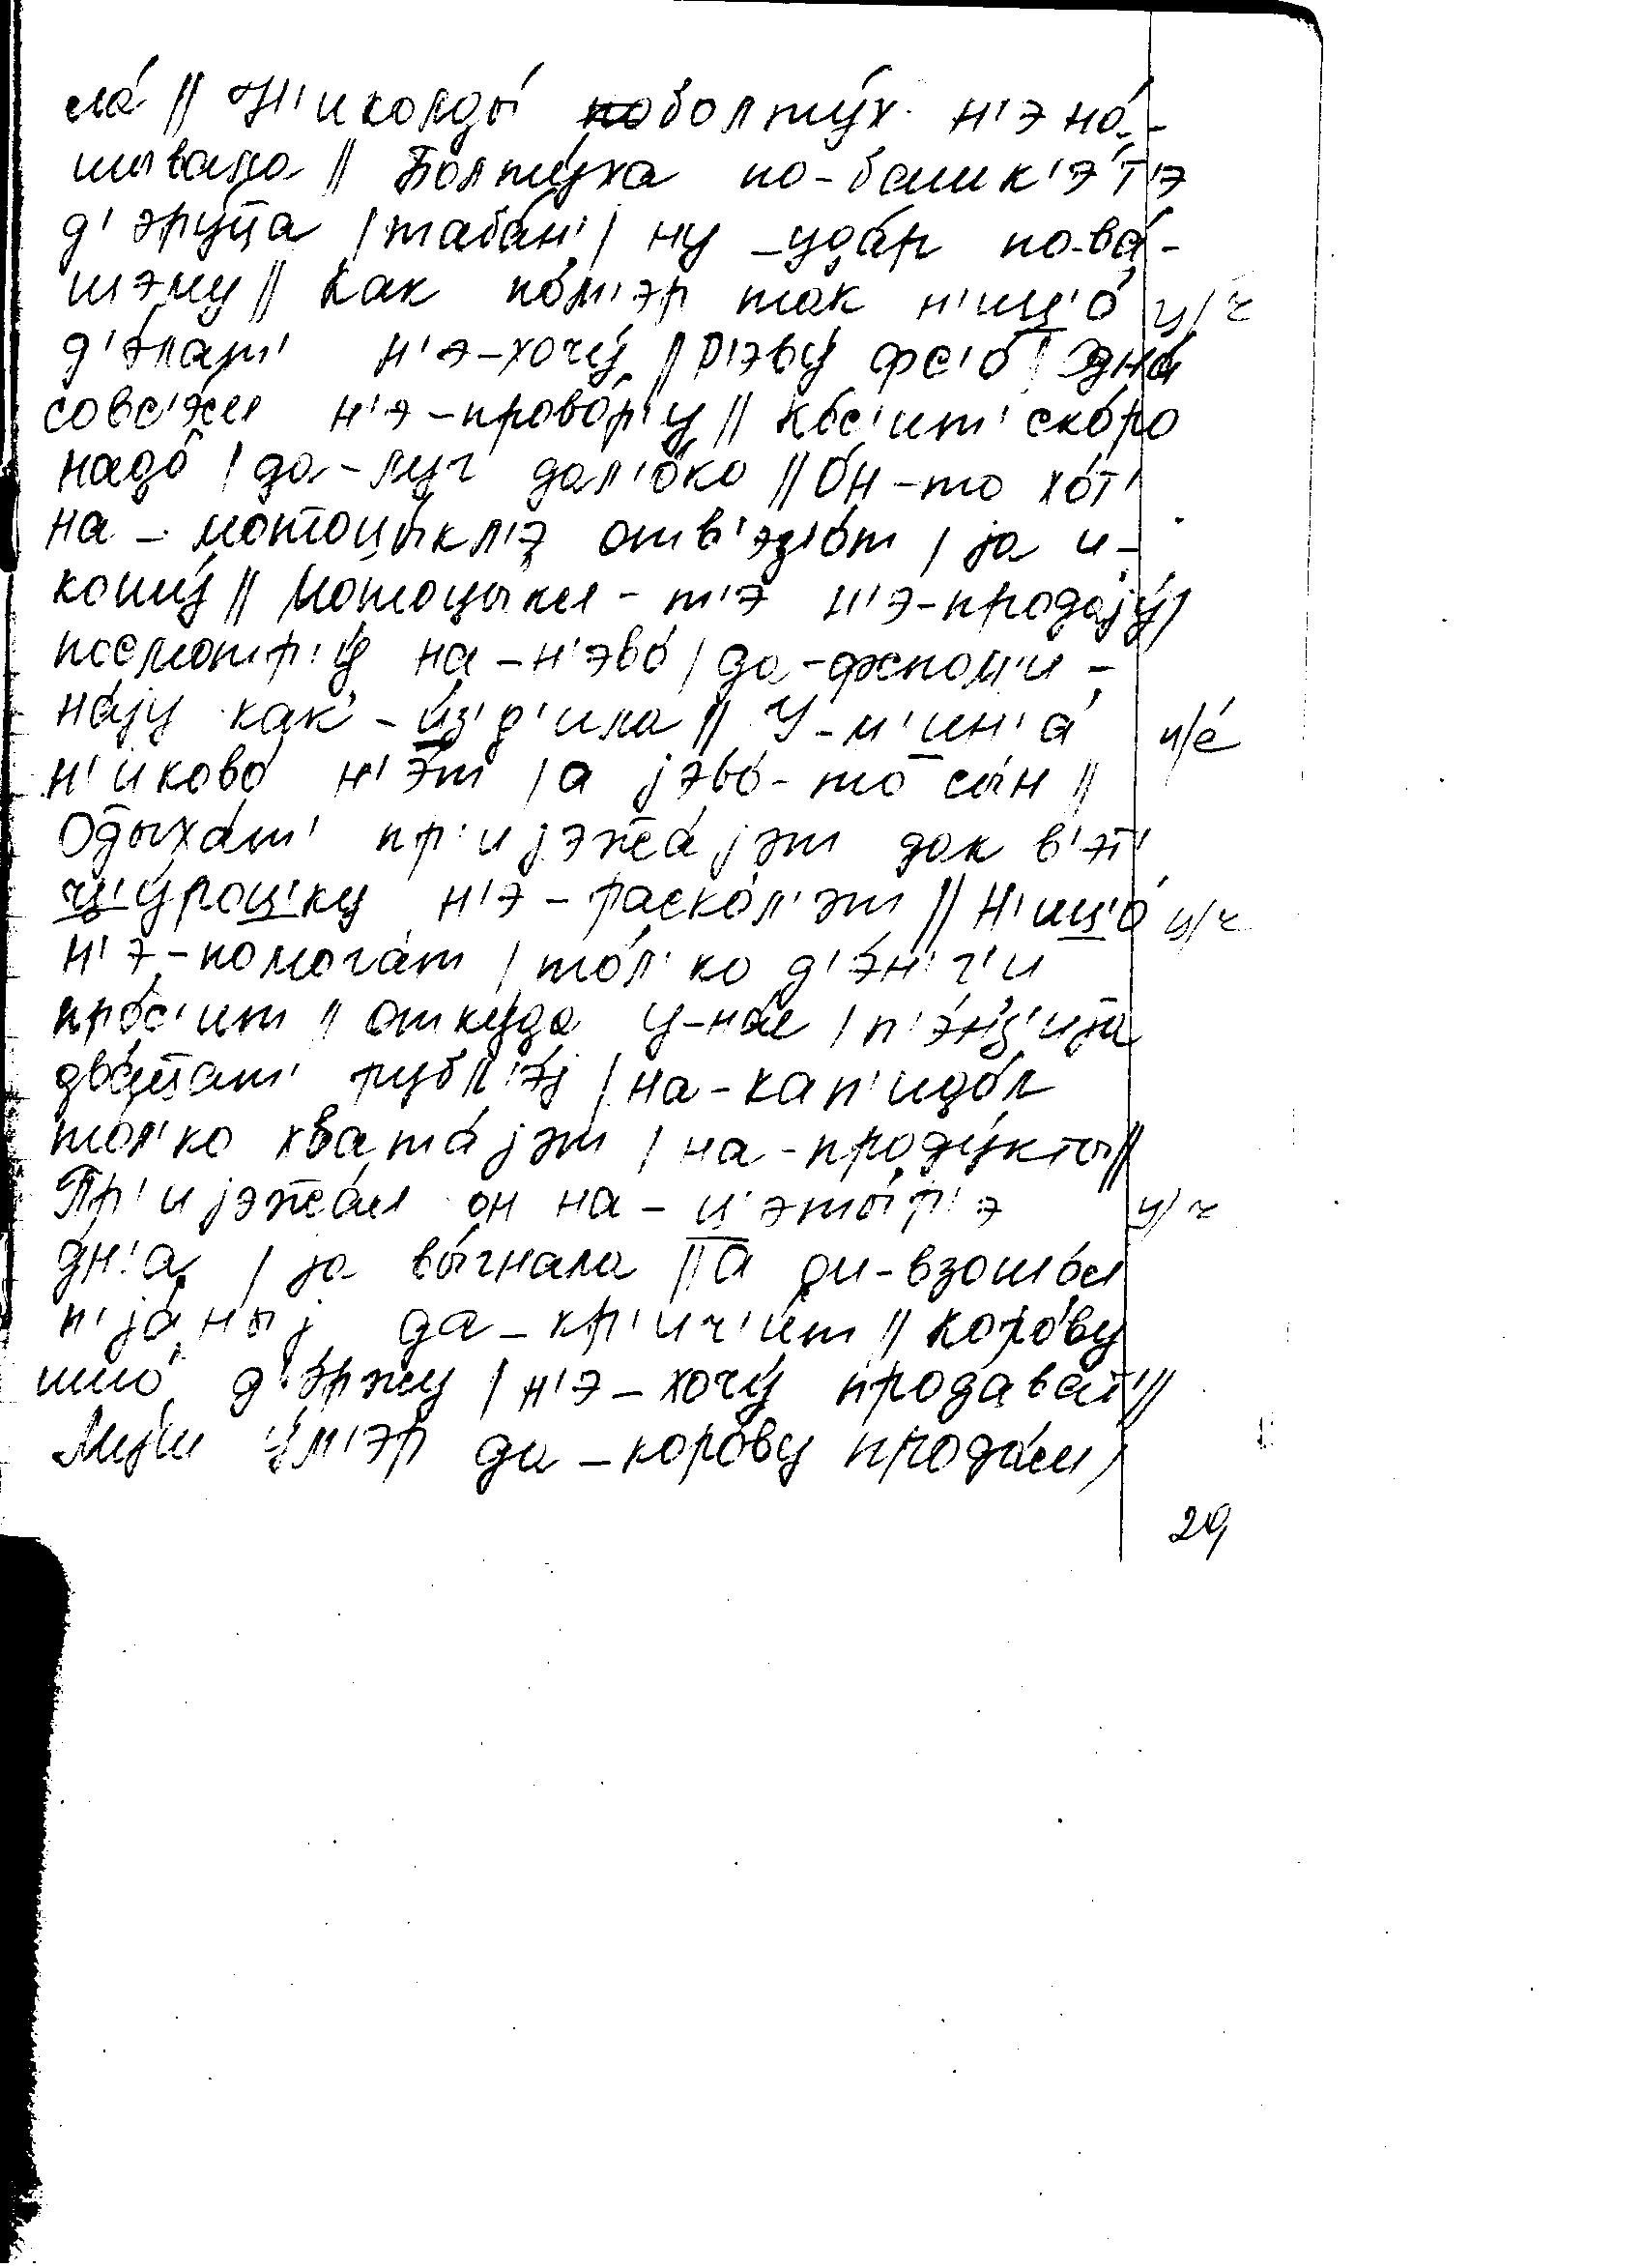 ла́ // Н'иколды́ болту́х н'э но́-
шывала // Болту́ха по-башк'э́т'э
д'эру́ца / таба́н' / ну-уда́р по-ва́-
шэму // Как по́м'эр так н'иц'о́ ц/ч
д'э́лат' н'э-хочу́ // Р'эву́ фс'о / Одна́
совс'э́м н'э-прово́р'у // Кос'и́т' ско́ро
надо / да-луг дал'око́ // О́н-то хо́т'
на-мотоцы́кл'э отв'эз'о́т / jа и-
кошу́ // Мотоцыкл-т'э н'э-продаjу́ /
посмотр'у́ на-н'эво́ / да-фспом'и-
на́jу как-и́з'д'ила // У-м'ин'а́ и/е́
н'иково́ н'э́т / а jэво́-то сы́н //
Одыха́т' пр'иjэжа́jэт дак в'эт'
ц'у́роц'ку н'э-раско́л'эт // Н'иц'о́ ц/ч
н'э-помога́т / то́л'ко д'э́н'г'и
про́с'ит // отку́да у-на́с / п'э́нз'иjа
два́цат' рубл'э́j / на-кап'идо́л
то́л'ко хвата́jэт / на-проду́кты //
Пр'иjэжа́л он на-ц'эты́р'э ц/ч
дн'а / jа вы́гнала // а он-взошо́л
п'jа́ныj да-кр'ич'и́т // коро́ву
шшо́ д'эржу / н'э-хочу́ продава́т' //
Му́ш у́м'эр да-коро́ву прода́м /
29